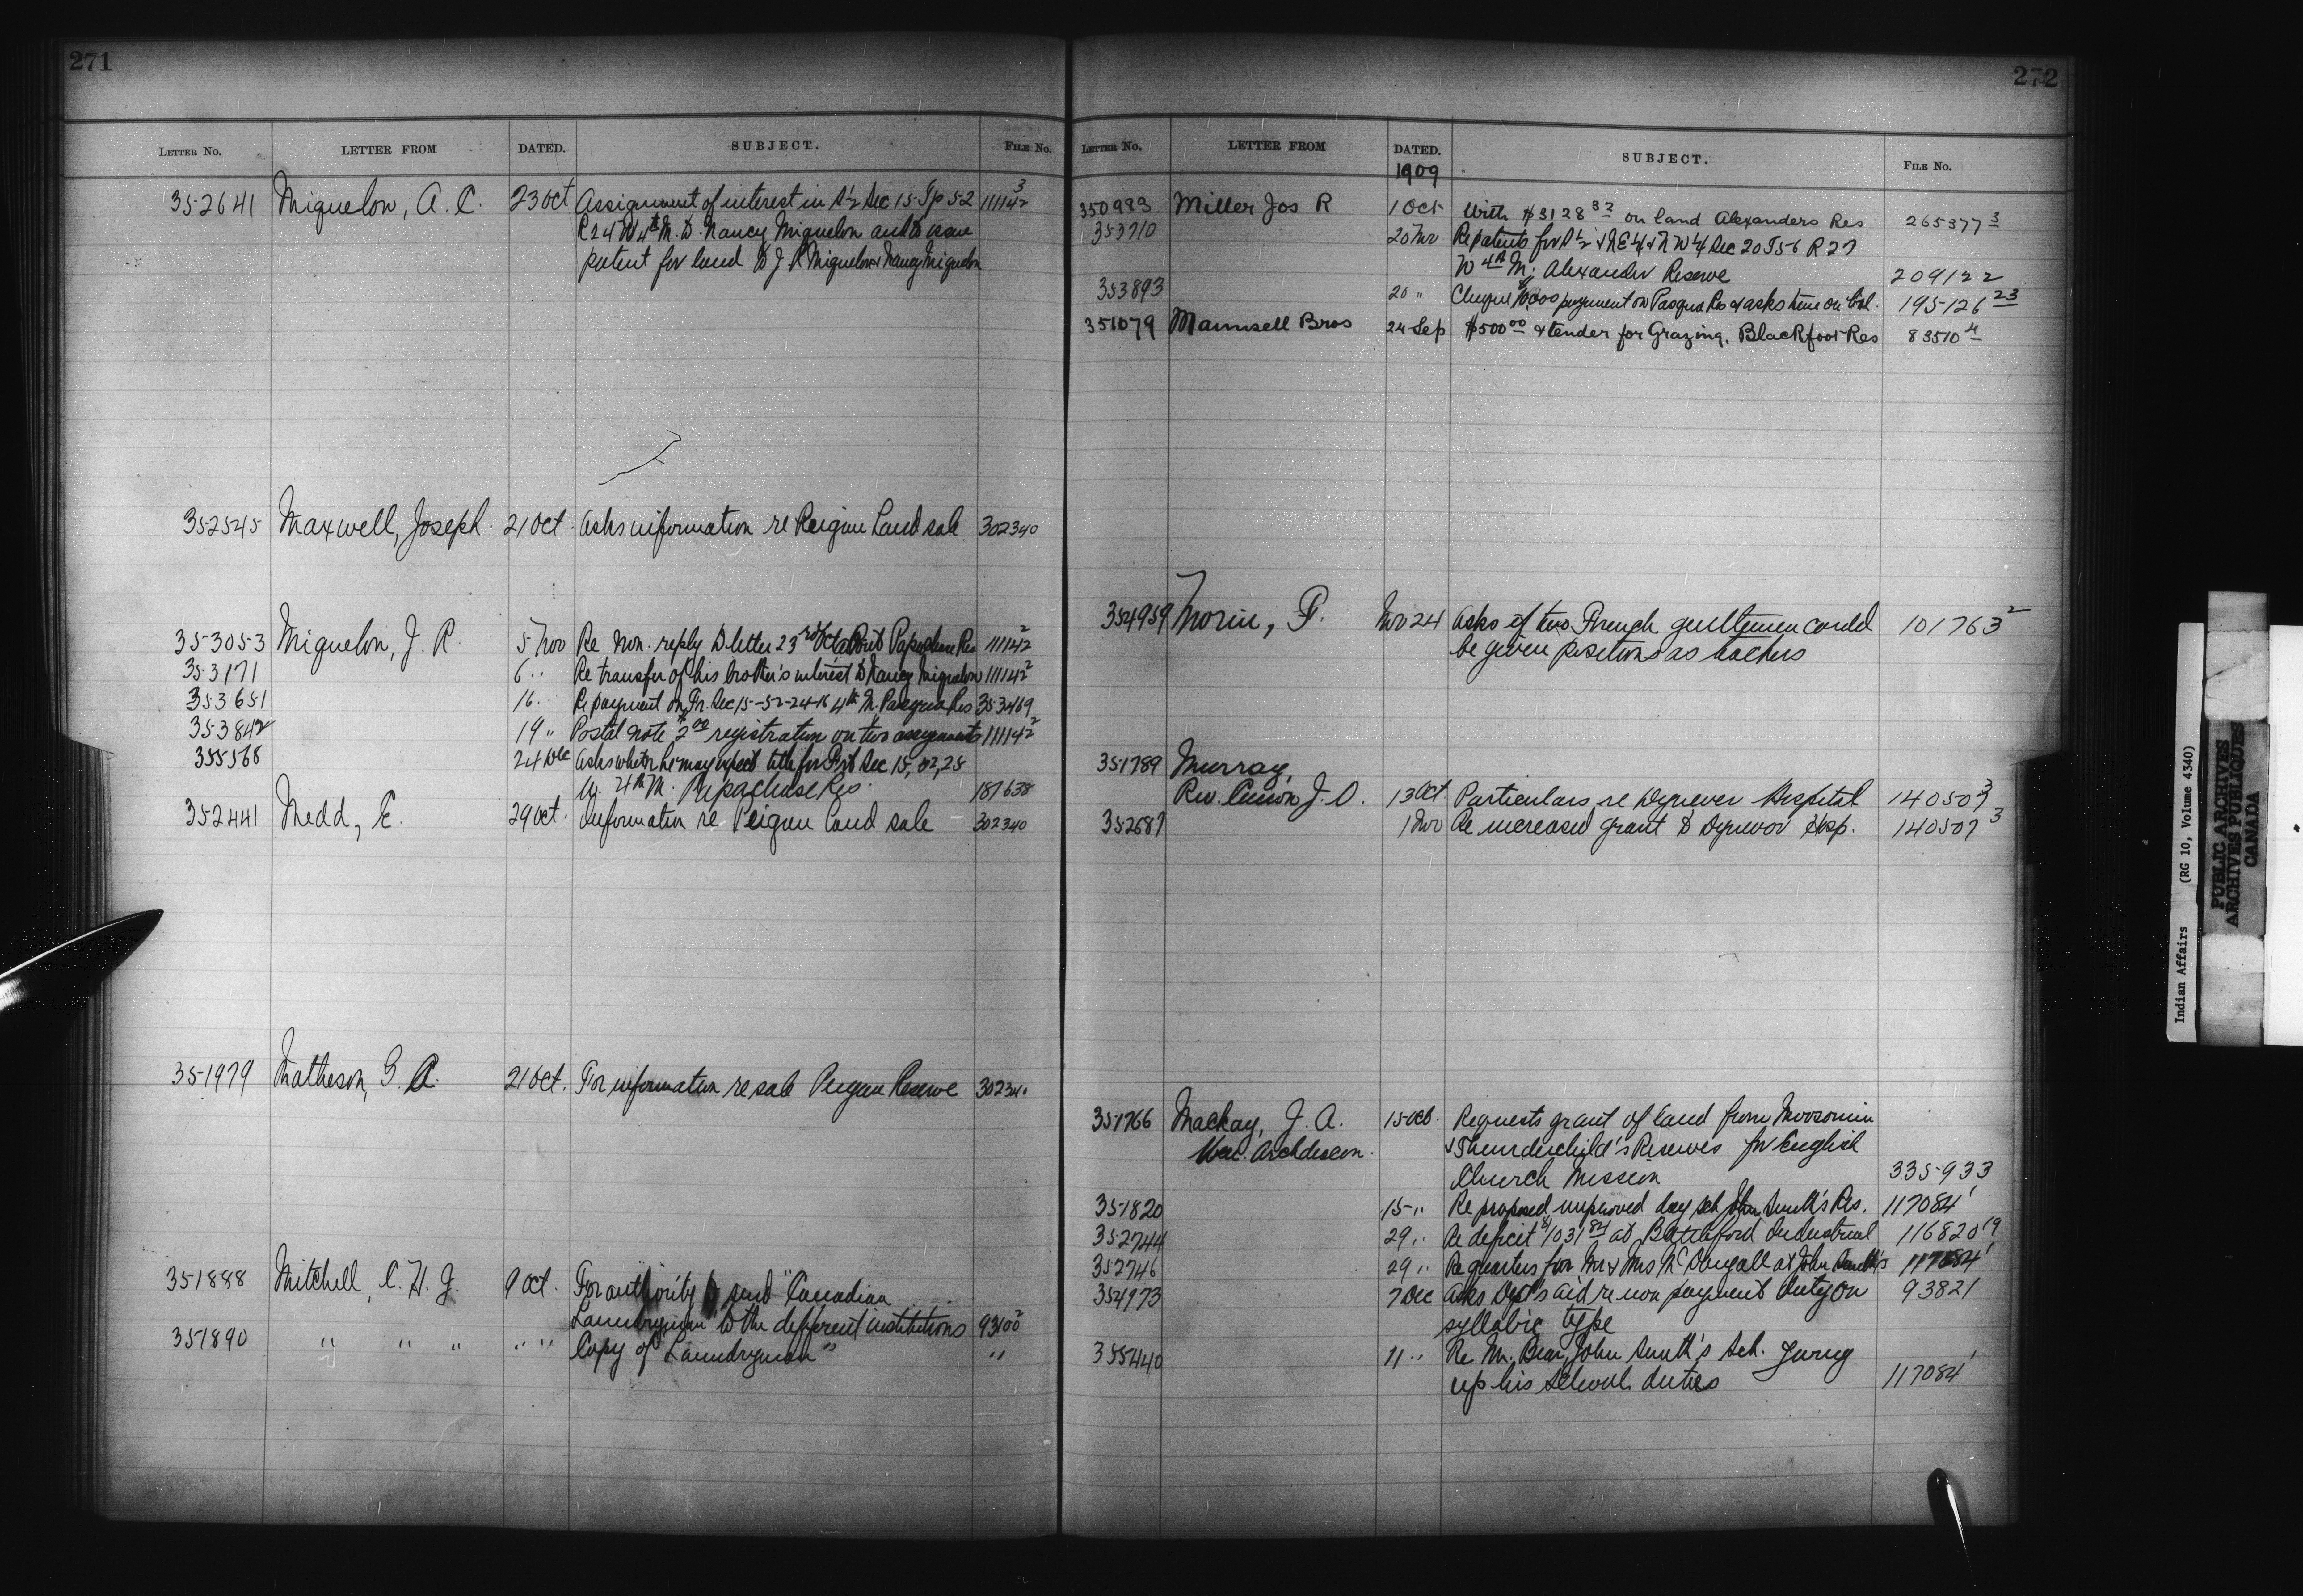 271
LETTER NO. LETTER FROM DATED. SUBJECT. FILE NO.
352641 Miquelon, A. C. 23 Oct Assignment of interest in S½ Sec 15 Tp 52 111142³
R24 W4th M. to Nancy Miquelon and to issue
patent for land to J R Miquelon & Nancy Miquelon
352545 Maxwell, Joseph. 21 Oct. Asks information re Peigan Land sale 302340
353053 Miquelon, J. R. 5 Nov Re non. reply to letter 23rd Oct about Papaschase Res 111142²
353171 6 " Re transfer of his brother's interest to Nancy Miquelon 111142²
353651 16 " Re payment on Fr. Sec 15-52-24-W 4th M. Res 353469
353842 19 " Postal note $2.00 registration on two assignments 111142²
355568 24 Dec Asks whether he may expect title for Sec 15, 52, 25
W. 4th M. Papachase Res. 187638
352441 Medd, E. 29 Oct. Information re Peigan land sale 302340
351979 Matheson, G. A. 21 Oct. For information re sale Peigan Reserve 302340
351888 Mitchell, C. H. G. 9 Oct. For authority to send "Canadian
Laundryman" to the different institutions 93100²
351890 " " " " " Copy of "Laundryman" "
272
LETTER NO. LETTER FROM DATED. SUBJECT. FILE NO.
1909
350983 Miller Jos R 1 Oct With $3128 32 on land Alexanders Res 265377 3
353710 20 Nov Re patents for S½ & NE¼ & NW¼ Sec 20 T56 R 27
W 4th M; Alexander Reserve 209122
353893 20 " Cheque payment on Pasqua Res & asks time on bal. 195126 23
351079 Maunsell Bros 24 Sep $500 00 & tender for Grazing, Blackfoot Res 83510 4
354959 Morin, P. Nov 24 Asks if two French gentlemen could 101763²
be given positions as teachers
351789 Murray,
Rev. Canon J. O. 13 Oct. Particulars re Dynevor Hospital 140507³
352687 1 Nov Re increased grant to Dynevor Hosp. 140507³
351766 Mackay, J. A. 15 Oct. Requests grant of land from Moosomin
Ven. Archdeacon. & Thunderchild's Reserves for English
Church Mission 335933
351820 15 " Re proposed improved day sch John Smith's Res. 117084¹
352744 29 " Re deficit $1031 84 at Battleford Industrial 116820 19
352746 29 " Re quarters for Mr & Mrs McDougall at John Smith's 117084¹
354973 7 Dec Asks Dept's aid re non payment duty on 93821
syllabic type
355440 11 " Re Mr. Bear, John Smith's Sch. giving
up his school duties 117084¹
Indian Affairs (RG 10, Volume 4340)
PUBLIC ARCHIVES
ARCHIVES PUBLIQUES
CANADA